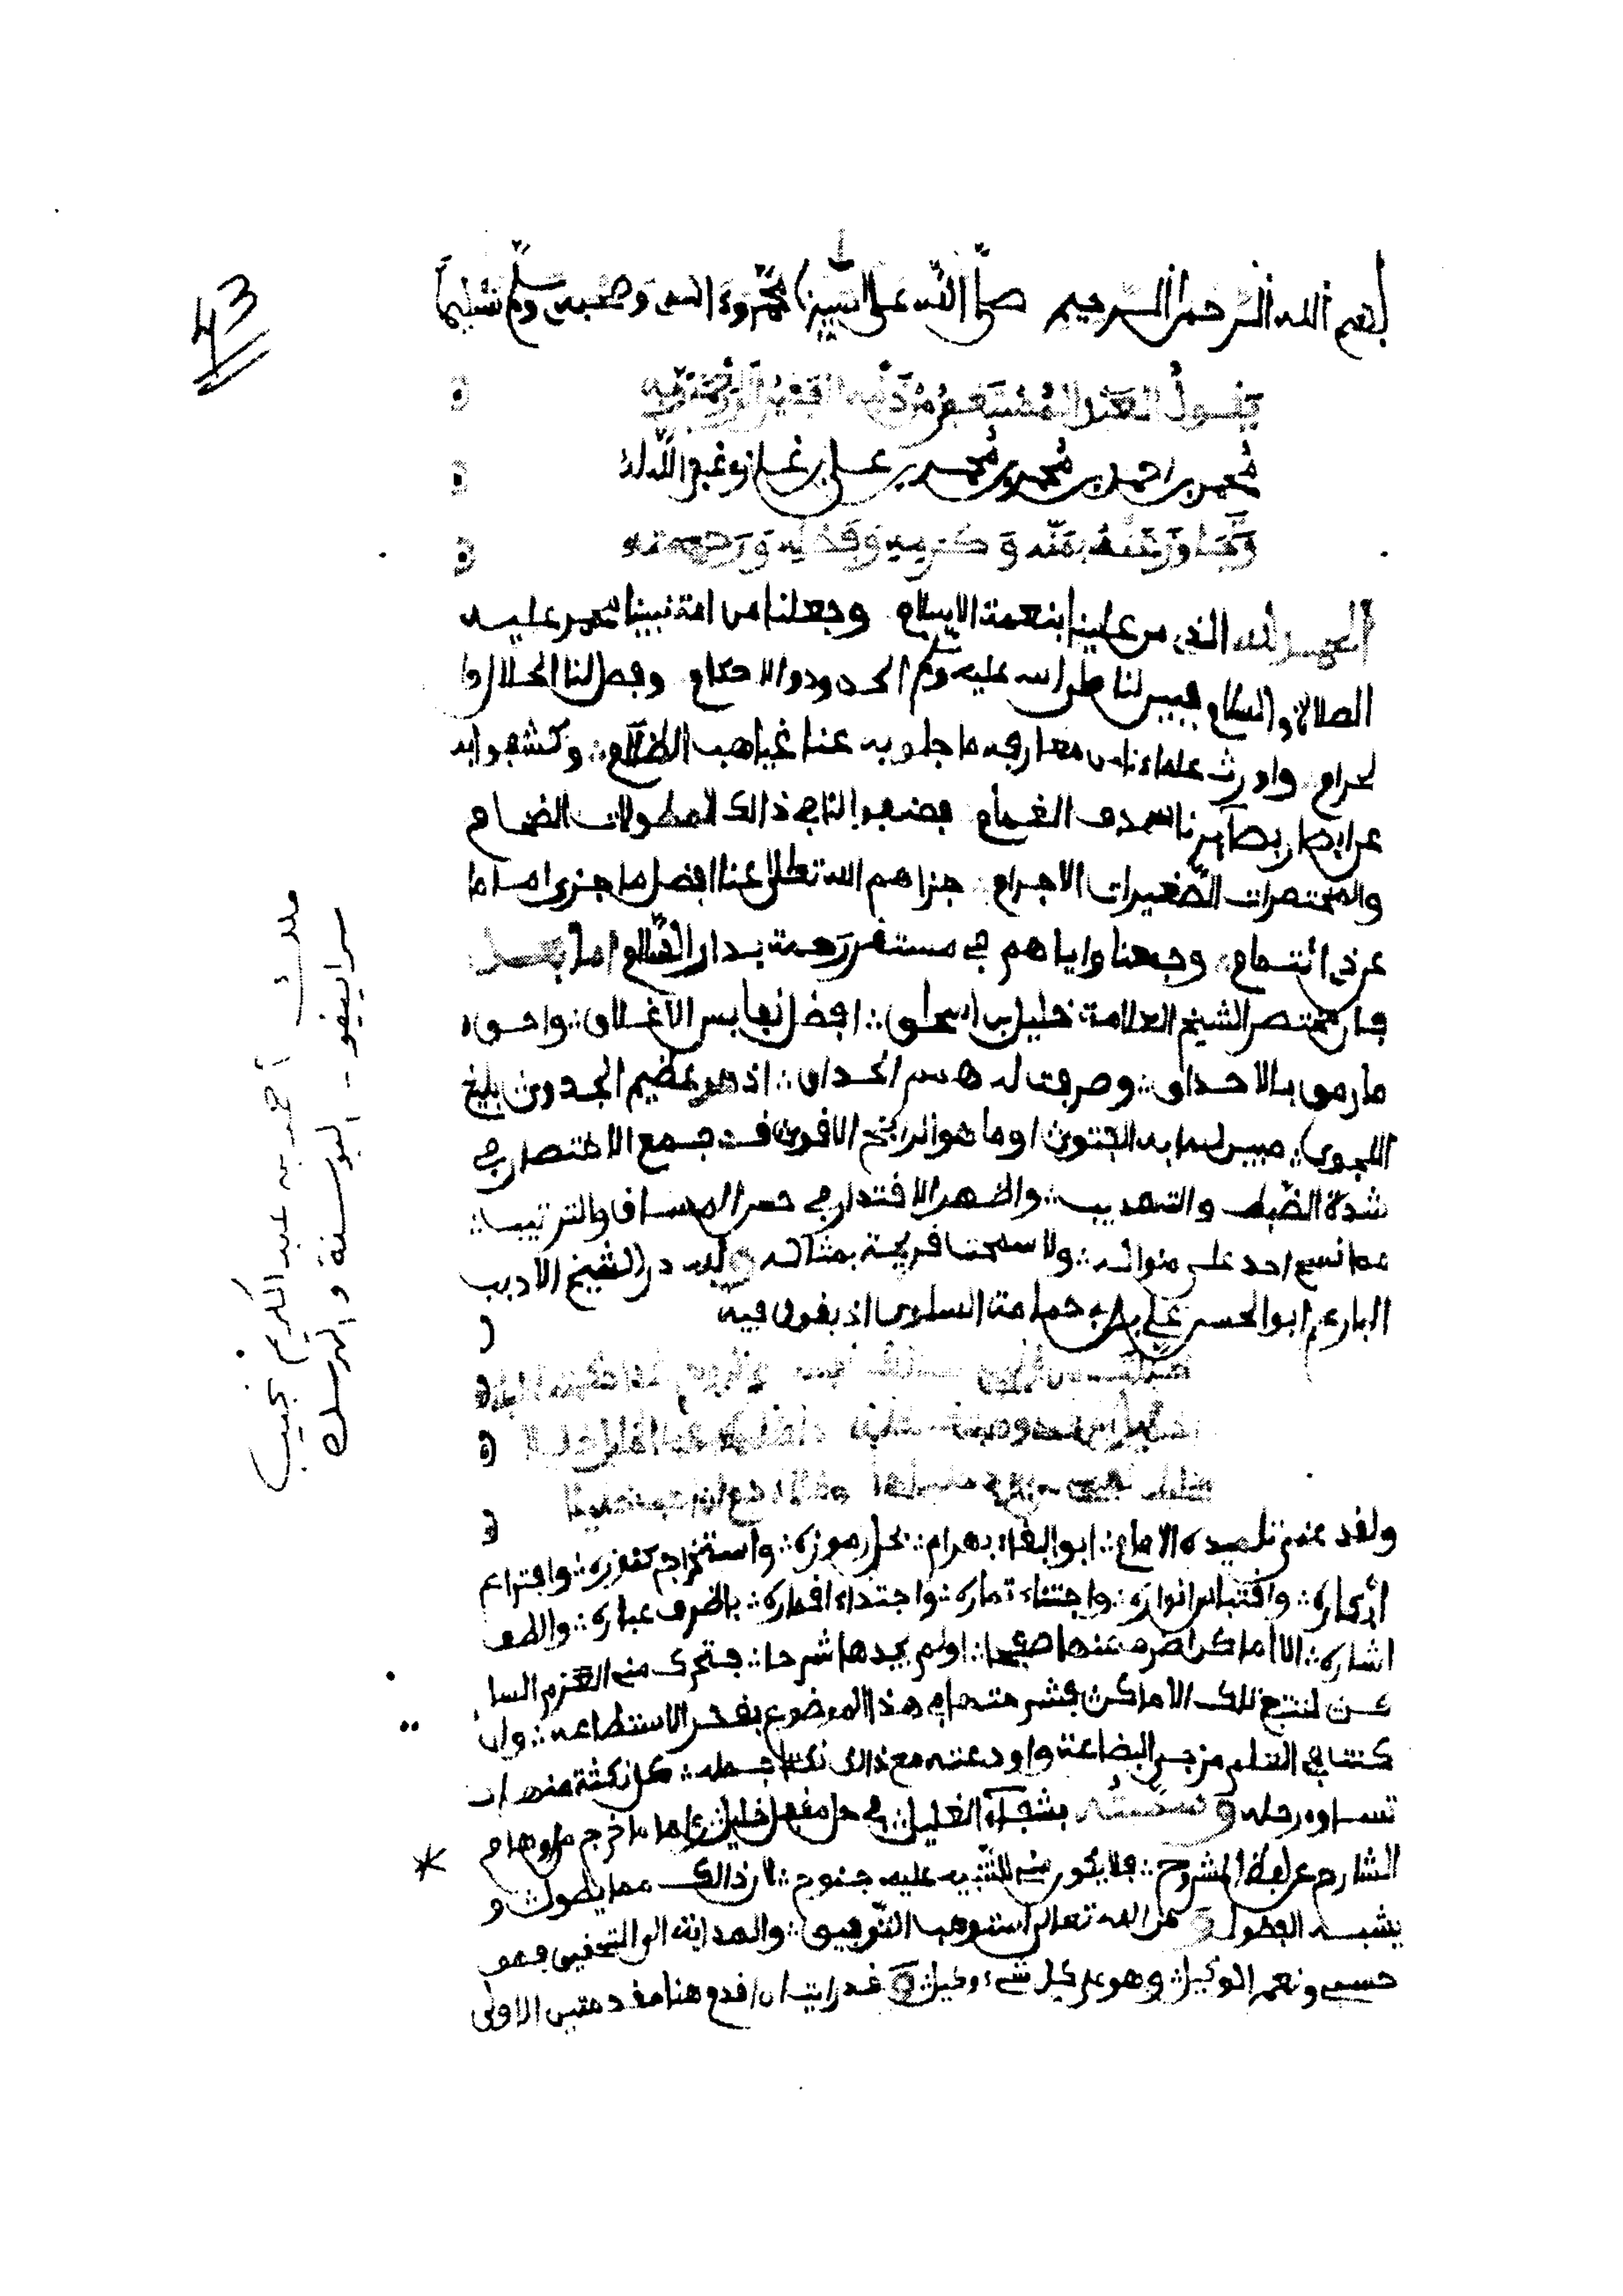 43
بسم الله الرحمن الرحيم صلى الله على سيدنا محمد وءاله وصحبه وسلم تسليما
يقول العبد المستغفر من ذنبه الفقير الى رحمة ربه
محمد بن احمد بن محمد بن محمد بن علي بن غازي غفر الله له
وتجاوز عنه بمنه وكرمه وفضله ورحمته
الحمد لله الذي من علينا بنعمة الاسلام وجعلنا من امة نبينا محمد عليه
الصلاة والسلام فبين لنا صلى الله عليه وسلم الحدود والاحكام وفصل لنا الحلال وا
لحرام واورث علماءنا من معارفه ما جلو به عنا غياهب الظلام وكشفوا به
عن ابصار بصآئرنا سدف الغمام فصنفوا لنا في ذالك المطولات الضخام
والمختصرات الصغيرات الاجرام جزاهم الله تعالى عنا افضل ما جزى اماما
عن ذي ائتمام وجمعنا واياهم في مستقر رحمة بدار السلام اما بعد
فان مختصر الشيخ العلامة خليل بن اسحاق افضل نفايس الاعلاق واحق
ما رمق بالاحداق وصرفت له همم الحذاق اذ هو عظيم الجدوى بليغ
الفحوى مبين لما به الفتوى وما هو الراجح الاقوى قد جمع الاختصار في
شدة الضبط والتهذيب واظهر الاقتدار في حسن المساق والترتيب
فما نسج احد على منواله ولا سمحت قريحة بمثاله ولله در الشيخ الاديب
البارع ابو الحسن علي بن ابي حمامة السلوي اذ يقول فيه
ولقد عني تلميذه الامام ابو البقاء بهرام بحل رموزه واستخراج كنوزه وافتراع
أبكاره واقتباس انواره واجتناء ثماره واجتداء اقماره باظرف عباره والطف
اشاره الا اماكن اضرب عنها صفحا ولم يجدها شرحا فتحرك مني العزم السا
كن لتتبع تلك الاماكن فشرحتها في هذا الموضوع بقدر الاستطاعه وان
كنت في العلم مزجى البضاعة واودعته مع ذالك نكتا جمله كل نكتة منها
تساوي رحله وسميته بشفآء الغليل في حل مقفل خليل واما ما خرج من اوهام
الشارح عن لفظ المشروح فلا يكون مني للتنبيه عليه جنوح لان ذالك مما يطول و
يشبه الفضول ومن الله تعالى استوهب التوفيق والهداية الى التحقيق فهو
حسبي ونعم الوكيل وهو على كل شيء وكيل وقد رايت ان اقدم هنا مقدمتين الاولى
ملك أحمد بن عبد الكريم نجيب
سراييفو - البوسنة والهرسك